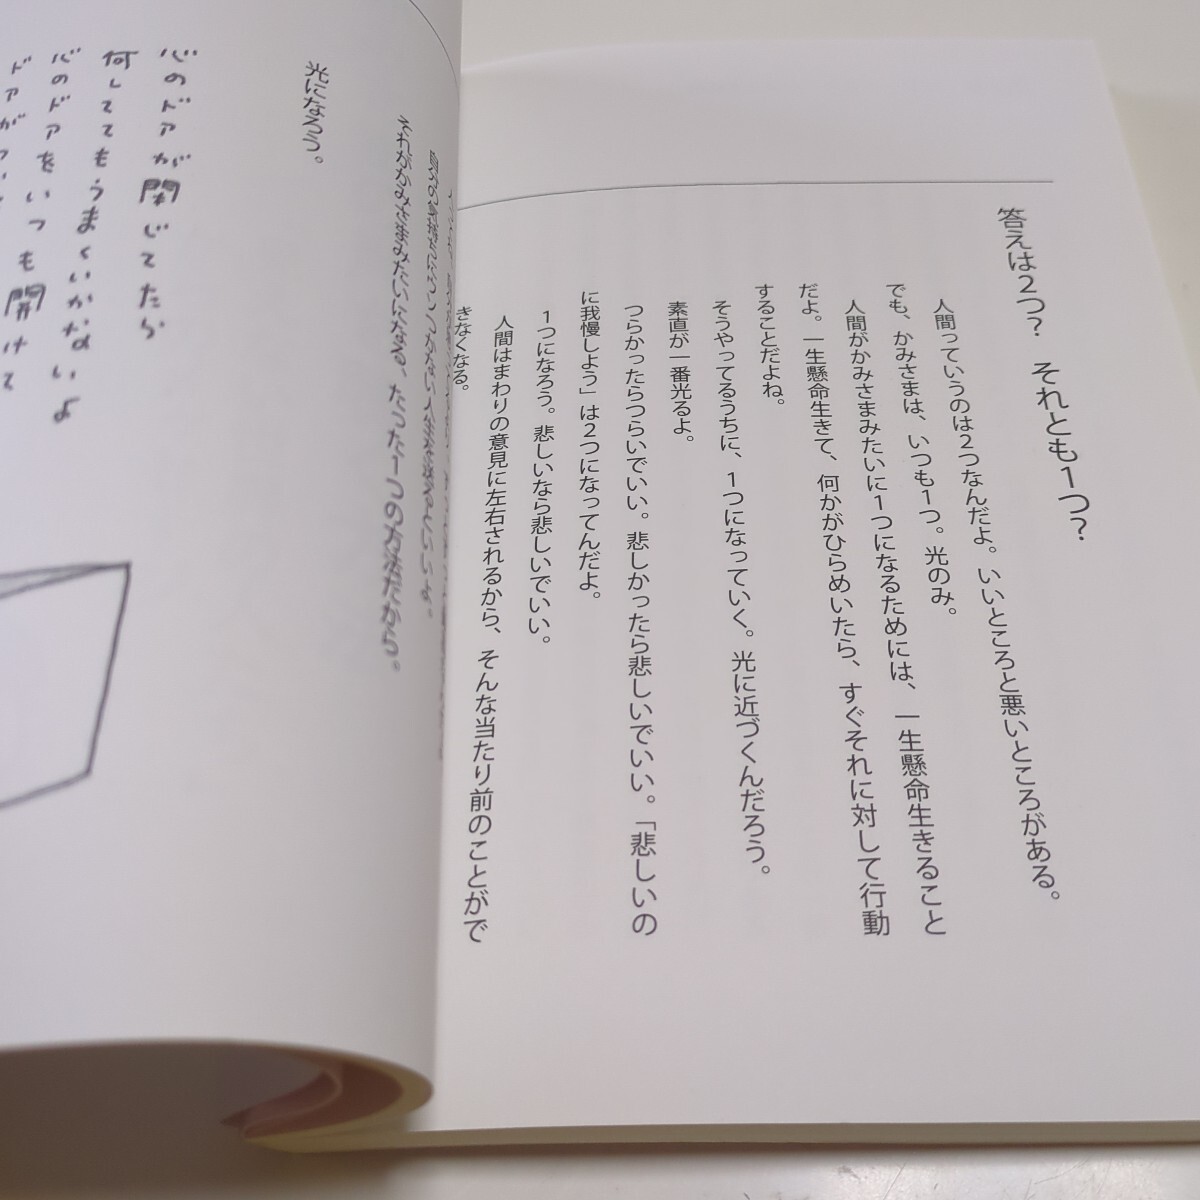 答えは2つ？　それとも1つ？
人間っていうのは2つなんだよ。いいところと悪いところがある。
でも、かみさまは、いつも1つ。光のみ。
人間がかみさまみたいに1つになるためには、一生懸命生きること
だよ。一生懸命生きて、何かがひらめいたら、すぐそれに対して行動
することだよね。
そうやってるうちに、1つになっていく。光に近づくんだろう。
素直が一番光るよ。
つらかったらつらいでいい。悲しかったら悲しいでいい。「悲しいの
に我慢しよう」は2つになってんだよ。
1つになろう。悲しいなら悲しいでいい。
人間はまわりの意見に左右されるから、そんな当たり前のことがで
きなくなる。
自分の気持ちにうそつかない人生を送るといいよ。
それがかみさまみたいになる、たった1つの方法だから。
光になろう。
心のドアが閉じてたら
何しててもうまくいかないよ
心のドアをいつも開けて
ドアが